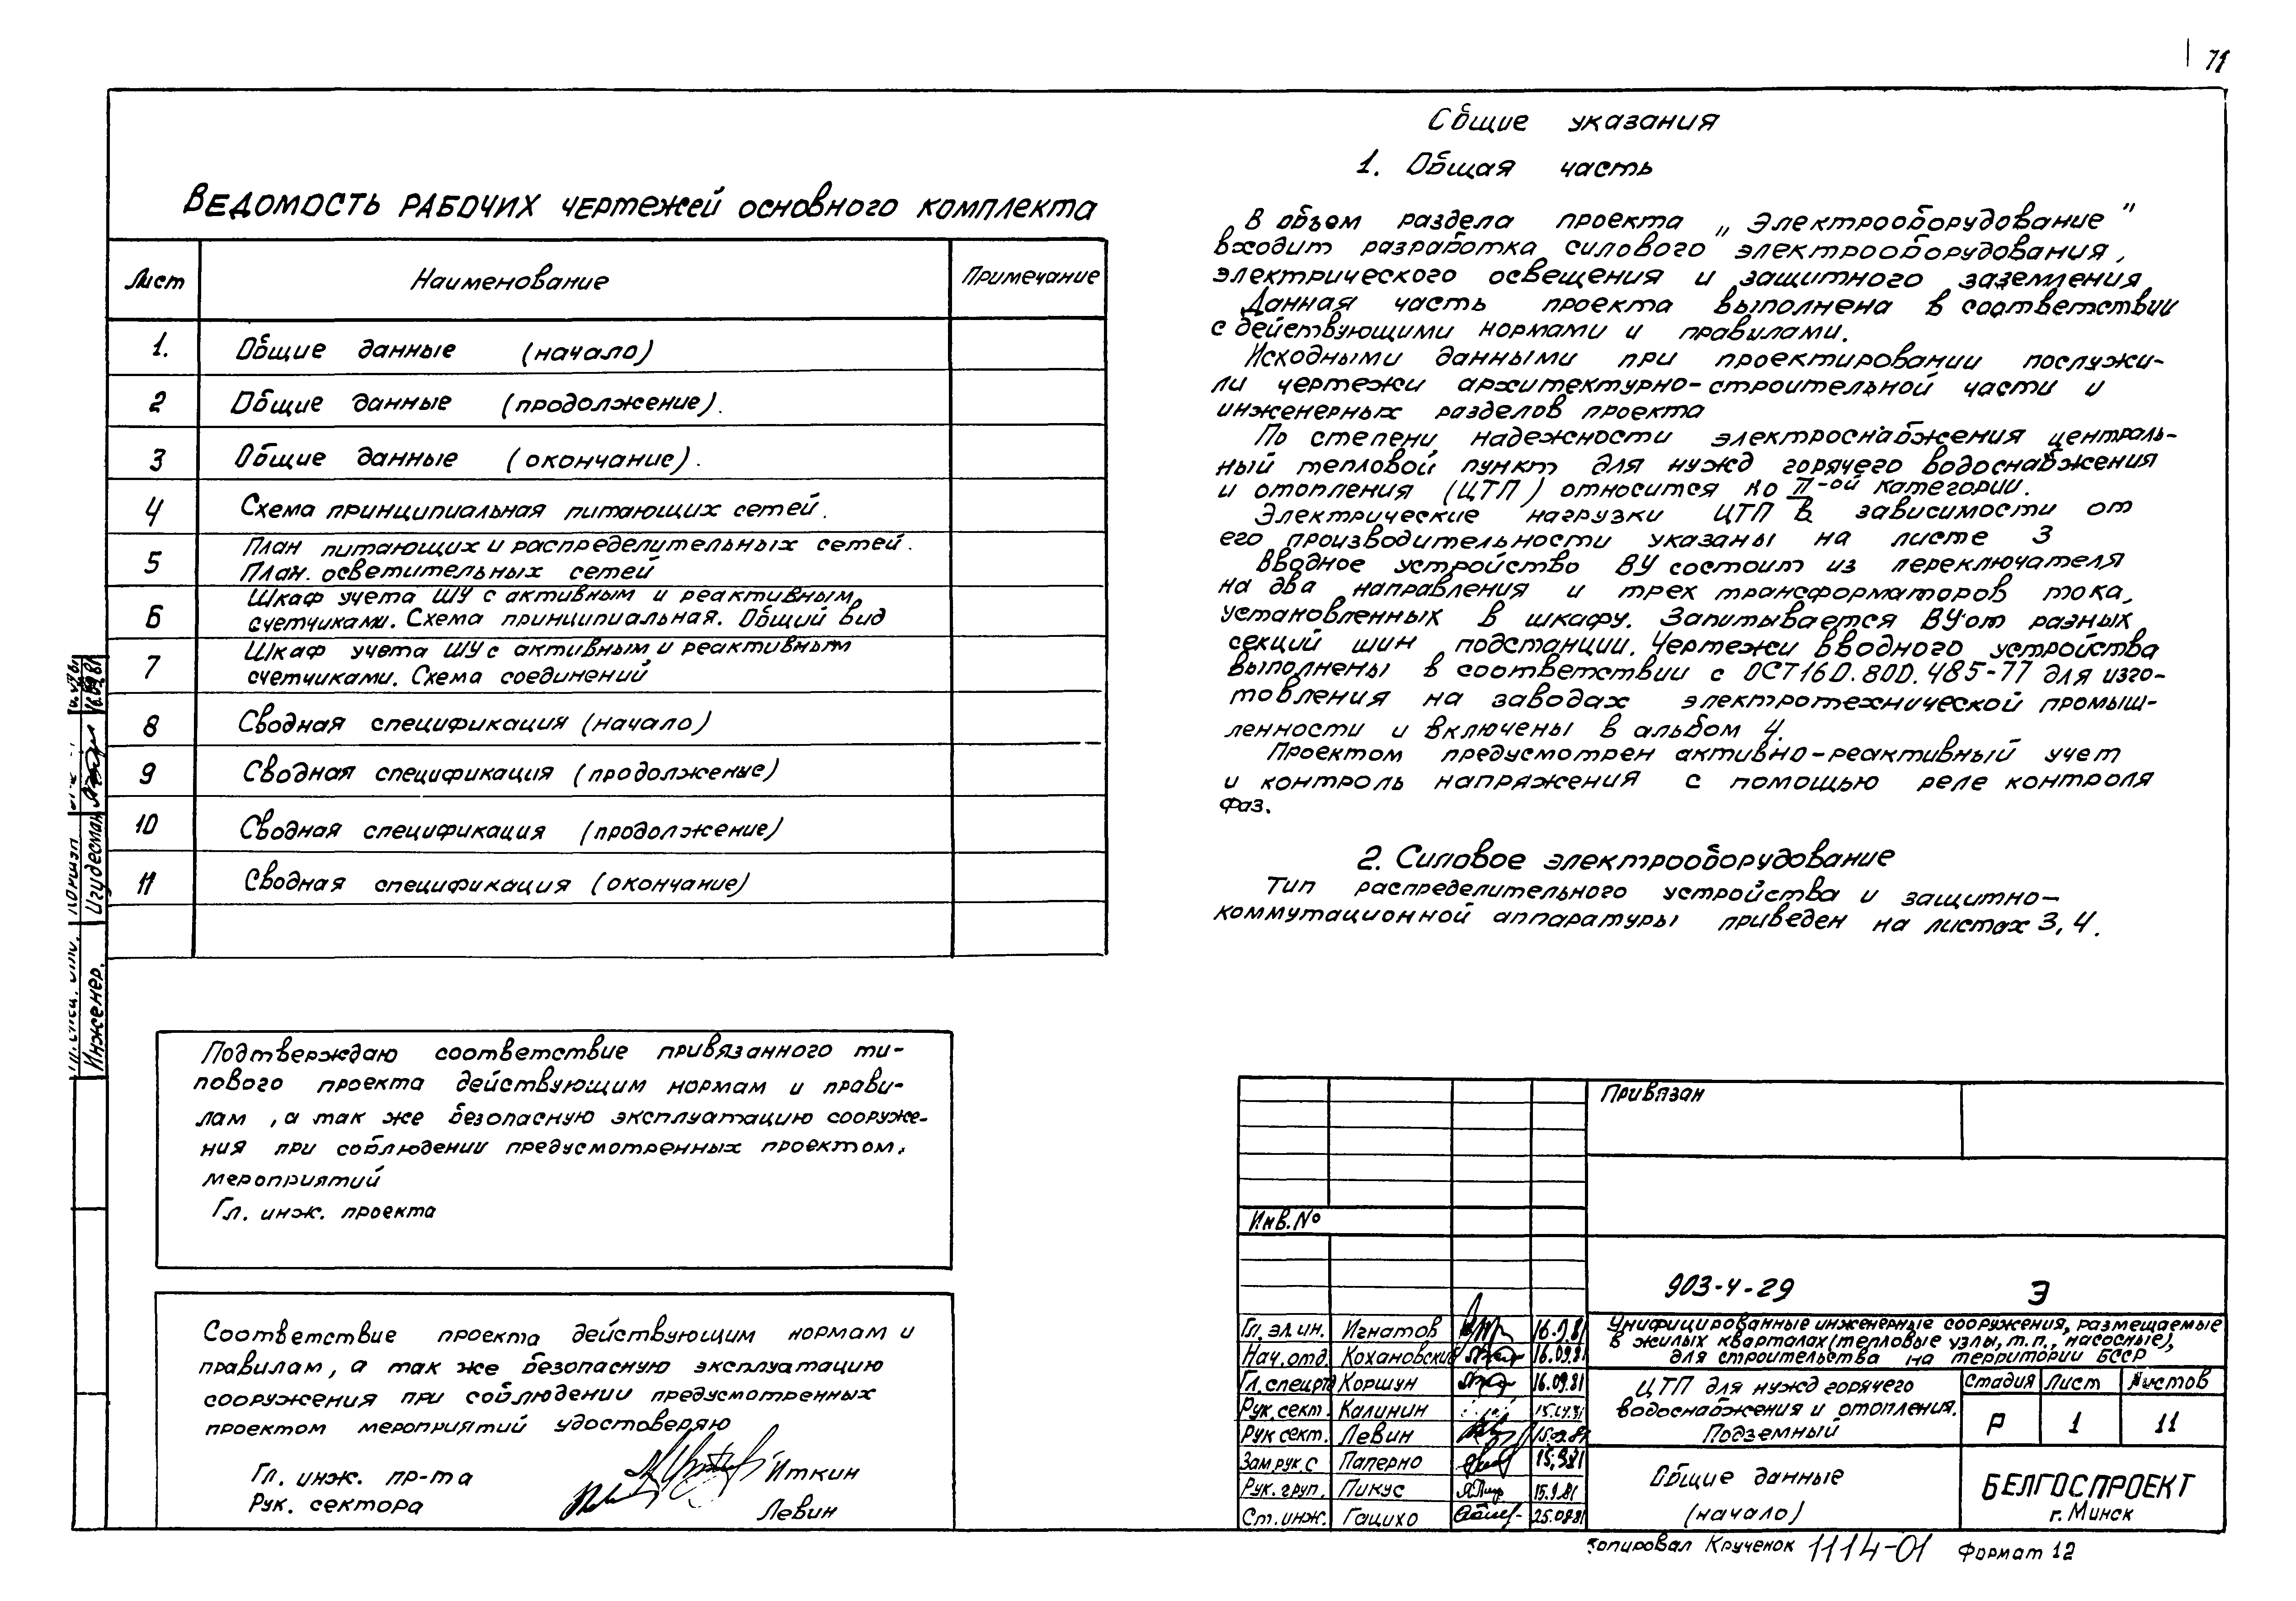 71
Ведомость рабочих чертежей основного комплекта
Лист Наименование Примечание
1. Общие данные (начало)
2 Общие данные (продолжение).
3 Общие данные (окончание).
4 Схема принципиальная питающих сетей.
5 План питающих и распределительных сетей.
План. осветительных сетей
6 Шкаф учета ШУ с активным и реактивным
счетчиками. Схема принципиальная. Общий вид
7 Шкаф учета ШУ с активным и реактивным
счетчиками. Схема соединений
8 Сводная спецификация (начало)
9 Сводная спецификация (продолжение)
10 Сводная спецификация (продолжение)
11 Сводная спецификация (окончание)
Подтверждаю соответствие привязанного ти-
пового проекта действующим нормам и прави-
лам, а так же безопасную эксплуатацию сооруже-
ния при соблюдении предусмотренных проектом,
мероприятий
Гл. инж. проекта
Соответствие проекта действующим нормам и
правилам, а так же безопасную эксплуатацию
сооружения при соблюдении предусмотренных
проектом мероприятий удостоверяю
Гл. инж. пр-та Иткин
Рук. сектора Левин
Общие указания
1. Общая часть
В объем раздела проекта „Электрооборудование"
входит разработка силового электрооборудования,
электрического освещения и защитного заземления
Данная часть проекта выполнена в соответствии
с действующими нормами и правилами.
Исходными данными при проектировании послужи-
ли чертежи архитектурно-строительной части и
инженерных разделов проекта
По степени надежности электроснабжения централь-
ный тепловой пункт для нужд горячего водоснабжения
и отопления (ЦТП) относится ко II-ой категории.
Электрические нагрузки ЦТП в зависимости от
его производительности указаны на листе 3
Вводное устройство ВУ состоит из переключателя
на два направления и трех трансформаторов тока,
установленных в шкафу. Запитывается ВУ от разных
секций шин подстанции. Чертежи вводного устройства
выполнены в соответствии с ОСТ16 0.800.485-77 для изго-
товления на заводах электротехнической промыш-
ленности и включены в альбом 4.
Проектом предусмотрен активно-реактивный учет
и контроль напряжения с помощью реле контроля
фаз.
2. Силовое электрооборудование
Тип распределительного устройства и защитно-
коммутационной аппаратуры приведен на листах 3, 4.
Привязан
Инв. №
903-4-29 Э
Унифицированные инженерные сооружения, размещаемые
в жилых кварталах (тепловые узлы, т.п., насосные),
для строительства на территории БССР
Гл. эл. ин. Игнатов 16.9.81
Нач. отд. Кохановский 16.09.81
Гл. спец. Коршун 16.09.81
Рук. сект. Калинин
Рук сект. Левин
Зам. рук. с Паперно 15.9.81
Рук. груп. Пикус 15.9.81
Ст. инж. Гацихо 25.08.81
ЦТП для нужд горячего
водоснабжения и отопления.
Подземный
Стадия Лист Листов
Р 1 11
Общие данные
(начало)
БЕЛГОСПРОЕКТ
г. Минск
Копировал Крученок 1114-01 Формат 12
Инженер. Игудесман